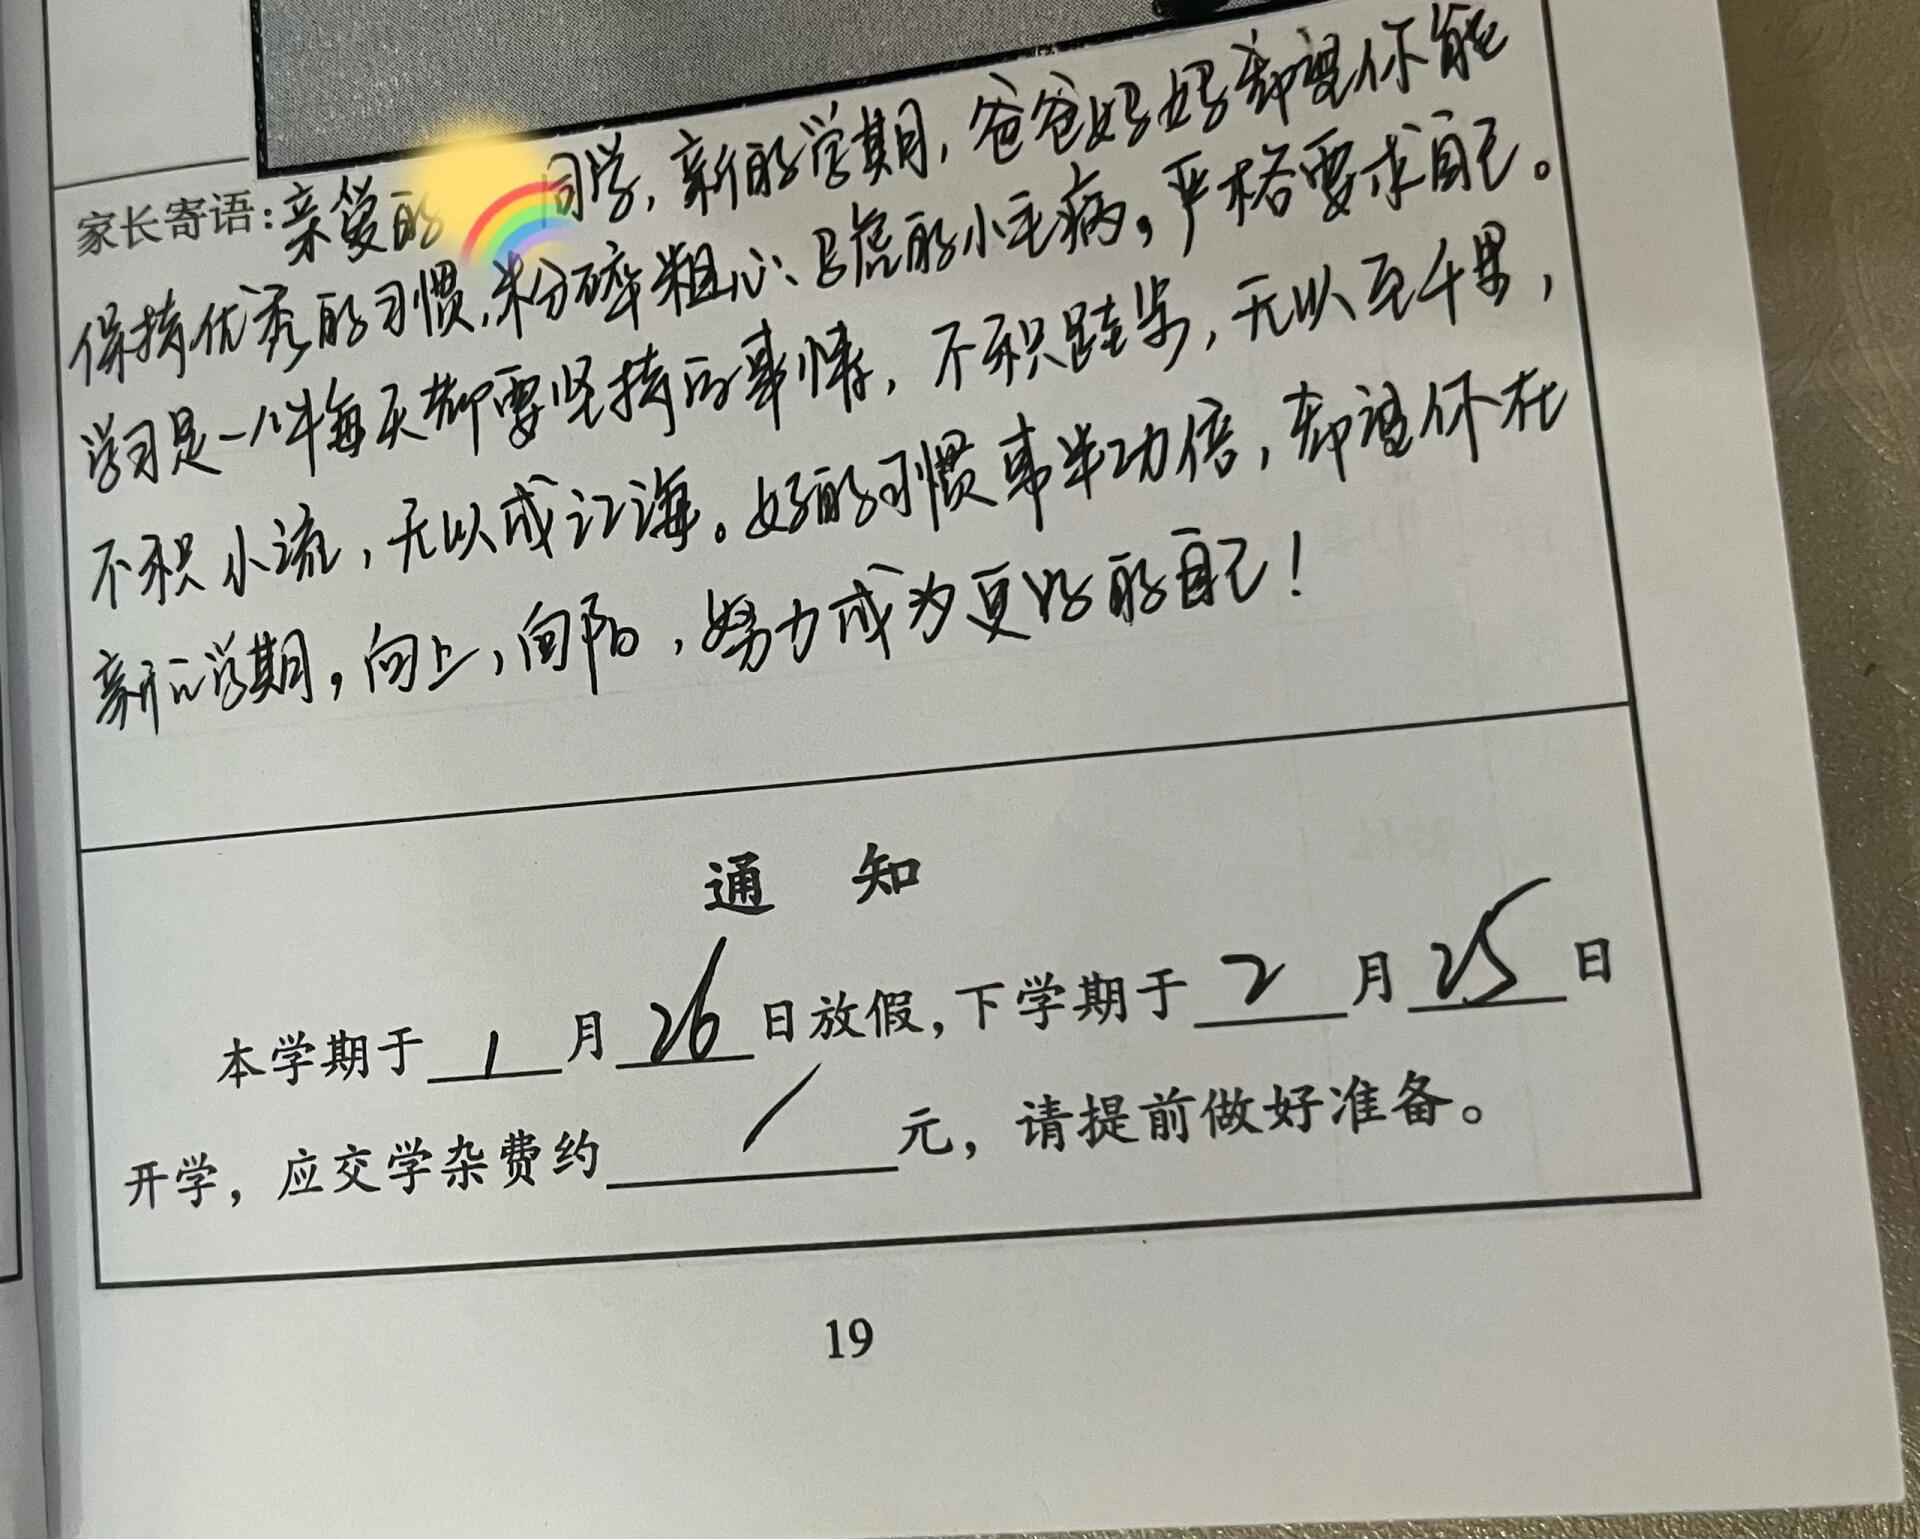 家长寄语:亲爱的 同学,新的学期,爸爸妈妈都望你能
保持优秀的习惯,粉碎粗心、马虎的小毛病。严格要求自己。
学习是一件每天都要坚持的事情,不积跬步,无以至千里,
不积小流,无以成江海。好的习惯事半功倍,却望你在
新的学期,向上,向阳,努力成为更好的自己!
通 知
本学期于 1 月 26 日放假,下学期于 2 月 25 日
开学,应交学杂费约 / 元,请提前做好准备。
19